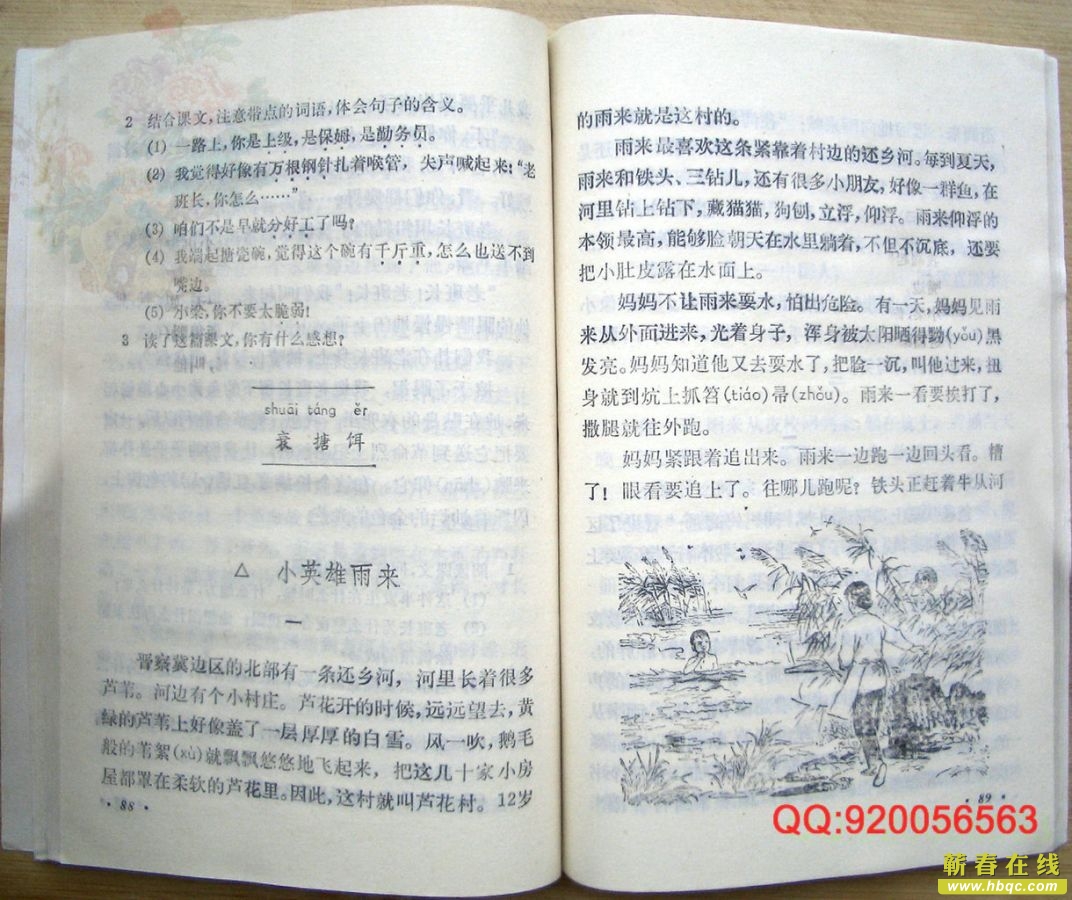 2 结合课文,注意带点的词语,体会句子的含义。
(1) 一路上,你是上级,是保姆,是勤务员。
(2) 我觉得好像有万根钢针扎着喉管,尖声喊起来:“老
班长,你怎么……”
(3) 咱们不是早就分好工了吗?
(4) 我端起搪瓷碗,觉得这个碗有千斤重,怎么也送不到
嘴边。
(5) 小梁,你不要太脆弱!
3 读了这篇课文,你有什么感想?
shuāi táng ěr
衰 搪 饵
△ 小英雄雨来
一
晋察冀边区的北部有一条还乡河,河里长着很多
芦苇。河边有个小村庄。芦花开的时候,远远望去,黄
绿的芦苇上好像盖了一层厚厚的白雪。风一吹,鹅毛
般的苇絮(xù)就飘飘悠悠地飞起来,把这几十家小房
屋都罩在柔软的芦花里。因此,这村就叫芦花村。12岁
· 88 ·
的雨来就是这村的。
雨来最喜欢这条紧靠着村边的还乡河。每到夏天,
雨来和铁头、三钻儿,还有很多小朋友,好像一群鱼,在
河里钻上钻下,藏猫猫,狗刨,立浮,仰浮。雨来仰浮的
本领最高,能够脸朝天在水里躺着,不但不沉底,还要
把小肚皮露在水面上。
妈妈不让雨来耍水,怕出危险。有一天,妈妈见雨
来从外面进来,光着身子,浑身被太阳晒得黝(yǒu)黑
发亮。妈妈知道他又去耍水了,把脸一沉,叫他过来,扭
身就到炕上抓笤(tiáo)帚(zhǒu)。雨来一看要挨打了,
撒腿就往外跑。
妈妈紧跟着追出来。雨来一边跑一边回头看。糟
了!眼看要追上了。往哪儿跑呢?铁头正赶着牛从河
· 89 ·
QQ:920056563
蕲春在线
www.hbqc.com